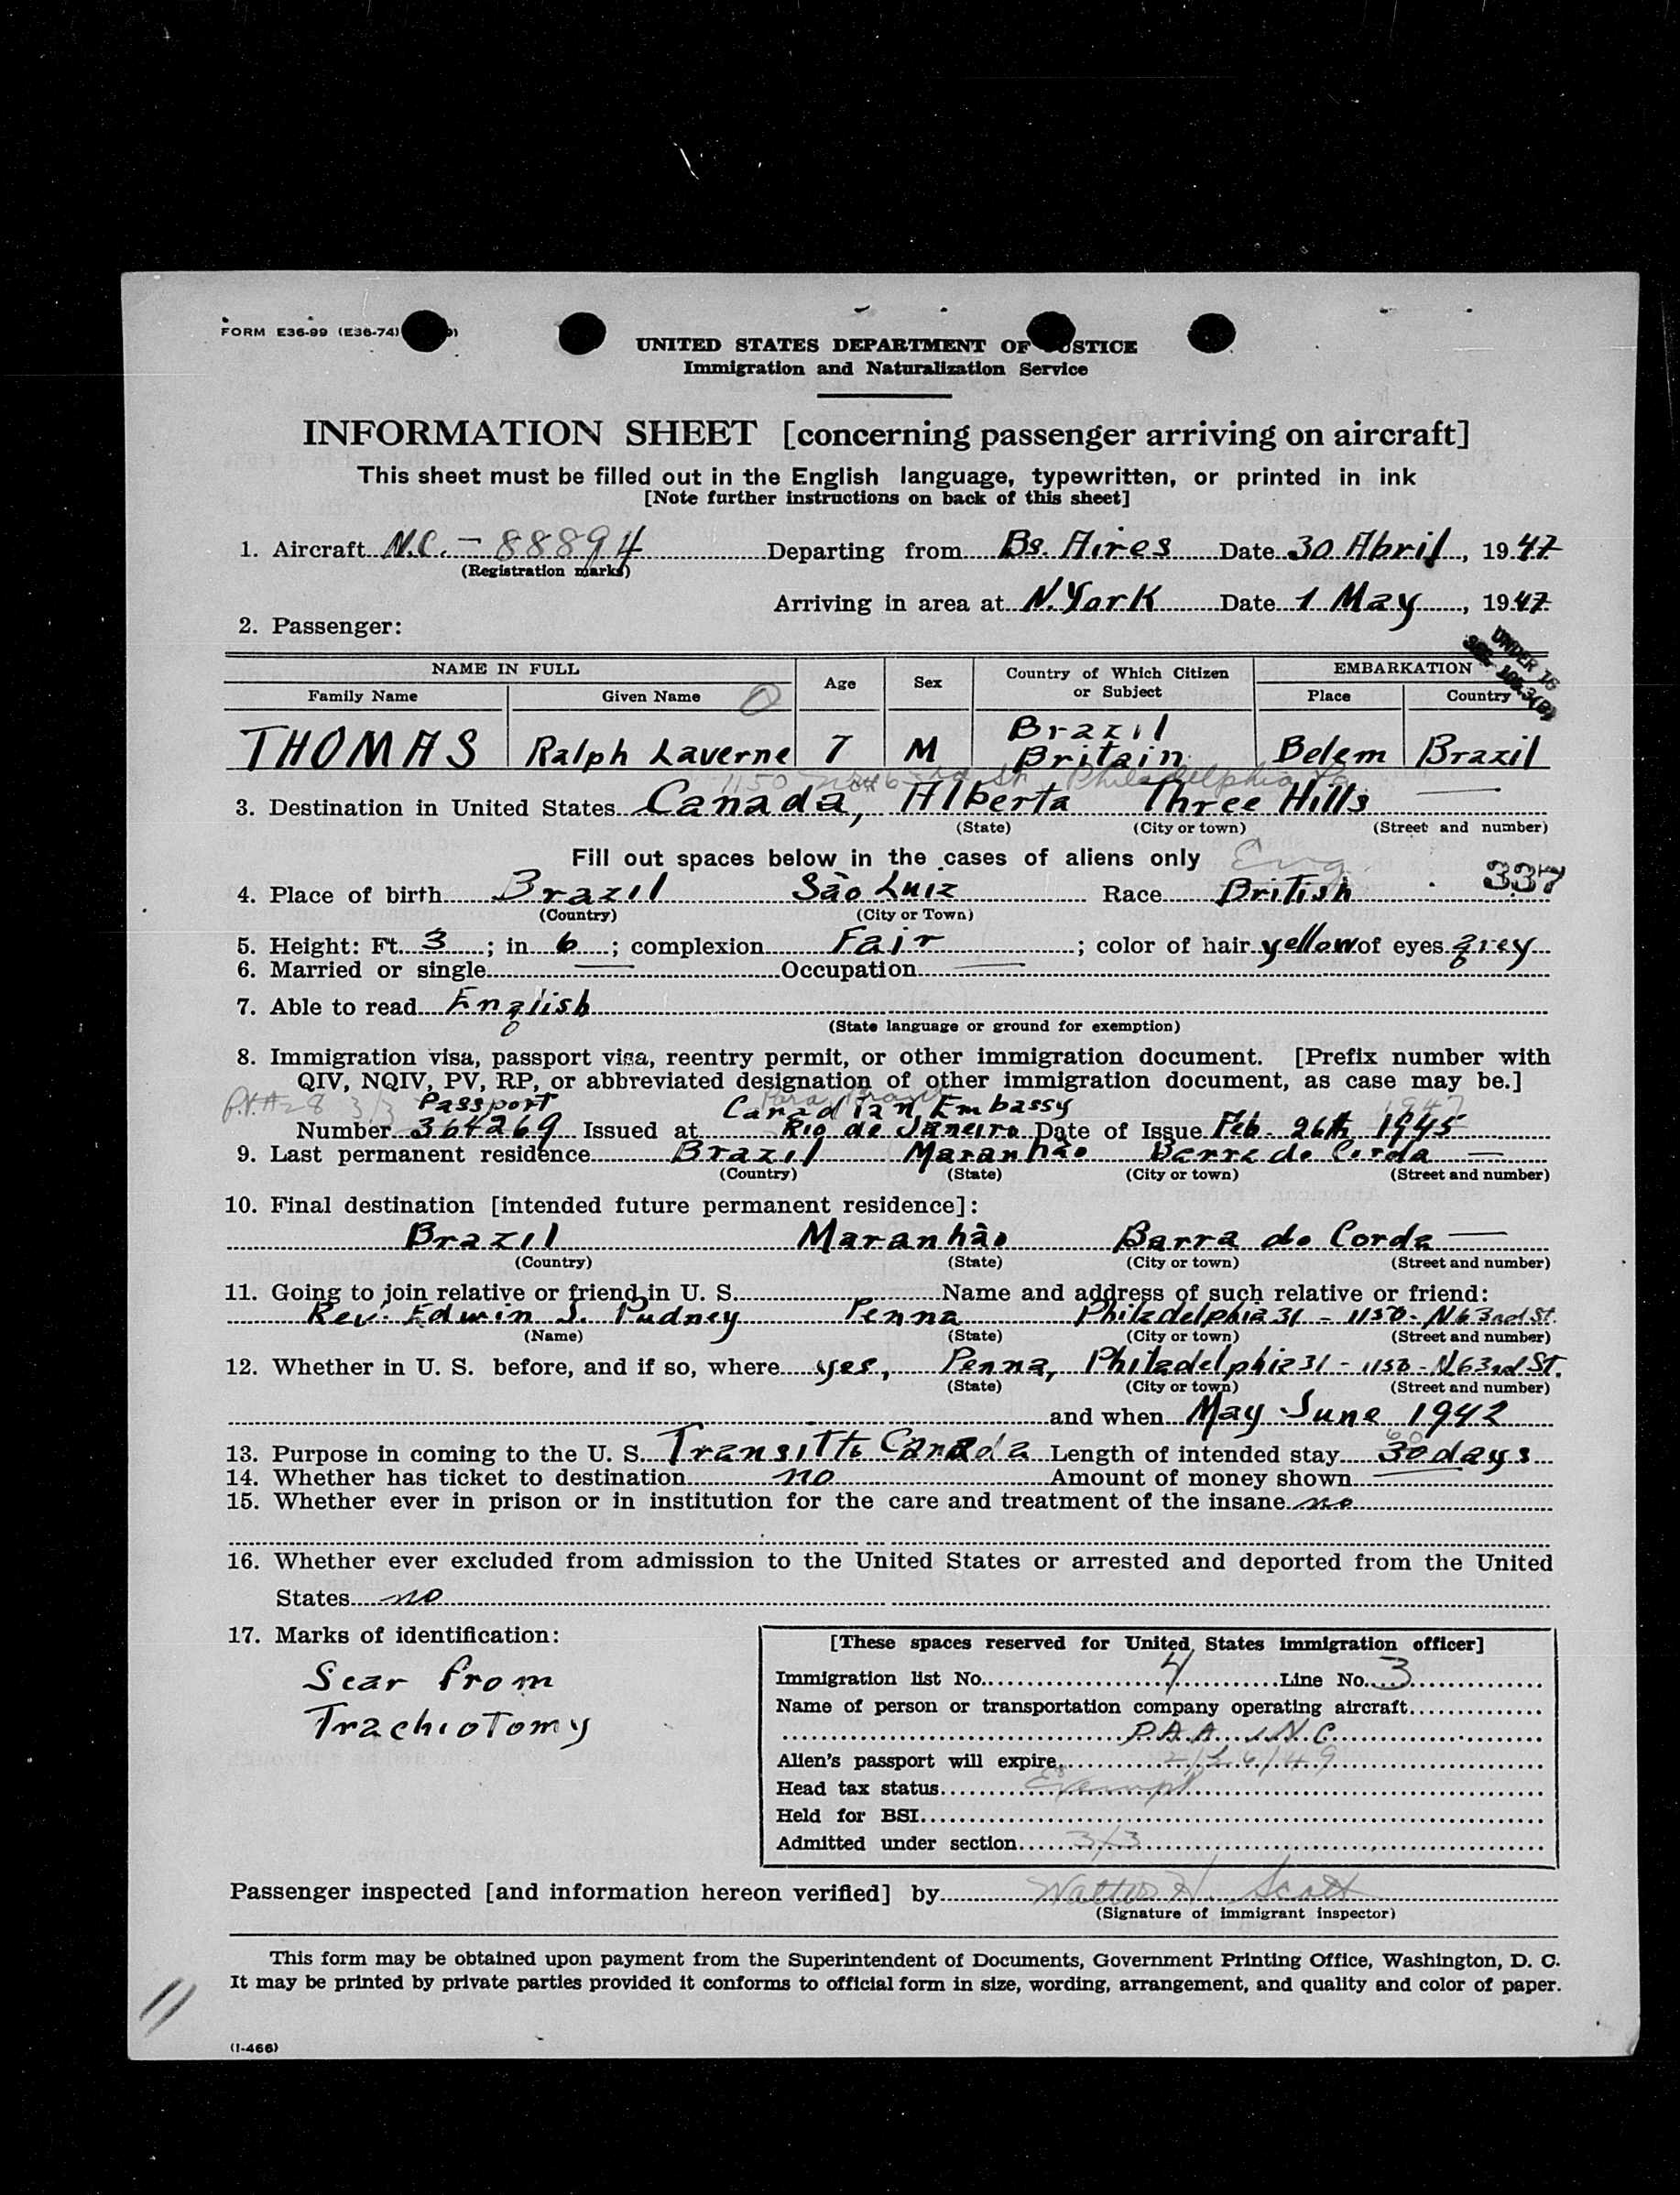 FORM E36-99 (E36-74)
UNITED STATES DEPARTMENT OF JUSTICE
Immigration and Naturalization Service
INFORMATION SHEET [concerning passenger arriving on aircraft]
This sheet must be filled out in the English language, typewritten, or printed in ink
[Note further instructions on back of this sheet]
1. Aircraft N.C. - 88894 Departing from Bs. Aires Date 30 Abril, 1947
(Registration marks)
Arriving in area at N. York Date 1 May, 1947
2. Passenger:
UNDER 16
NAME IN FULL Age Sex Country of Which Citizen or Subject EMBARKATION
Family Name Given Name Place Country
THOMAS Ralph Laverne 7 M Brazil Britain Belem Brazil
1150 63rd St. Philadelphia Pa
3. Destination in United States Canada, Alberta Three Hills
(State) (City or town) (Street and number)
Fill out spaces below in the cases of aliens only Eng. 337
4. Place of birth Brazil São Luiz Race British
(Country) (City or Town)
5. Height: Ft. 3; in 6; complexion Fair; color of hair yellow of eyes grey
6. Married or single — Occupation —
7. Able to read English
(State language or ground for exemption)
8. Immigration visa, passport visa, reentry permit, or other immigration document. [Prefix number with
QIV, NQIV, PV, RP, or abbreviated designation of other immigration document, as case may be.]
P.V. #28 3/3 Passport Para, Brazil Canadian Embassy 1947
Number 364269 Issued at Rio de Janeiro Date of Issue Feb. 26th 1945
9. Last permanent residence Brazil Maranhão Barra do Corda —
(Country) (State) (City or town) (Street and number)
10. Final destination [intended future permanent residence]:
Brazil Maranhão Barra do Corda —
(Country) (State) (City or town) (Street and number)
11. Going to join relative or friend in U. S. Name and address of such relative or friend:
Rev. Edwin J. Pudney Penna Philadelphia 31 - 1150 - N 63rd St.
(Name) (State) (City or town) (Street and number)
12. Whether in U. S. before, and if so, where yes, Penna, Philadelphia 31 - 1150 - N 63rd St.
(State) (City or town) (Street and number)
and when May June 1942
60
13. Purpose in coming to the U. S. Transit to Canada Length of intended stay 30 days
14. Whether has ticket to destination no Amount of money shown —
15. Whether ever in prison or in institution for the care and treatment of the insane no
16. Whether ever excluded from admission to the United States or arrested and deported from the United
States no
17. Marks of identification:
Scar from
Trachiotomy
[These spaces reserved for United States immigration officer]
Immigration list No. 4 Line No. 3
Name of person or transportation company operating aircraft
P.A.A. INC.
Alien's passport will expire 2/26/49
Head tax status Exempt
Held for BSI
Admitted under section 3/3
Passenger inspected [and information hereon verified] by Walter H. Scott
(Signature of immigrant inspector)
This form may be obtained upon payment from the Superintendent of Documents, Government Printing Office, Washington, D. C.
It may be printed by private parties provided it conforms to official form in size, wording, arrangement, and quality and color of paper.
(I-466)